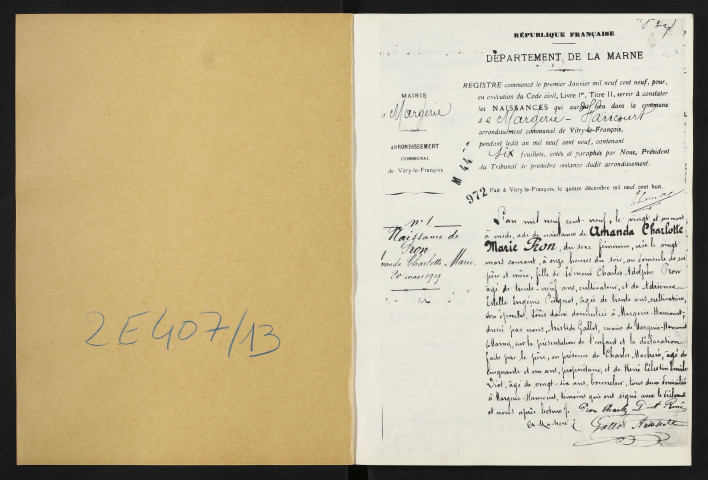 2E407/13
RÉPUBLIQUE FRANÇAISE
DÉPARTEMENT DE LA MARNE
MAIRIE
de Margerie
ARRONDISSEMENT
COMMUNAL
de Vitry-le-François
REGISTRE commencé le premier Janvier mil neuf cent neuf, pour,
en exécution du Code civil, Livre Ier, Titre II, servir à constater
les NAISSANCES qui auront lieu dans la commune
de Margerie-Hancourt
arrondissement communal de Vitry-le-François,
pendant ledit an mil neuf cent neuf, contenant
six feuillets, cotés et paraphés par Nous, Président
du Tribunal de première instance dudit arrondissement.
Fait à Vitry-le-François, le quinze décembre mil neuf cent huit.
M 44
972
n° 1
Naissance de
Pron
Amanda Charlotte Marie
20 mars 1909
L'an mil neuf cent neuf, le vingt et un mars
à midi, acte de naissance de Amanda Charlotte
Marie Pron, du sexe féminin, née le vingt
mars courant, à onze heures du soir, au domicile de ses
père et mère, fille de Edmond Charles Adolphe Pron
âgé de trente-neuf ans, cultivateur, et de Adrienne
Estelle Eugénie, âgée de trente ans, cultivatrice,
son épouse, tous deux domiciliés à Margerie-Hancourt;
dressé par nous, Aristide Gallot, maire de Margerie-Hancourt
(Marne), sur la présentation de l'enfant et la déclaration
faite par le père, en présence de Charles Macheré, âgé de
cinquante et un ans, propriétaire, et de René Célestin Emile
Diot, âgé de vingt-six ans, bourrelier, tous deux domiciliés
à Margerie-Hancourt, témoins qui ont signé avec le déclarant
et nous après lecture. Pron Charles Diot René
Ch Macheré Gallot Aristide